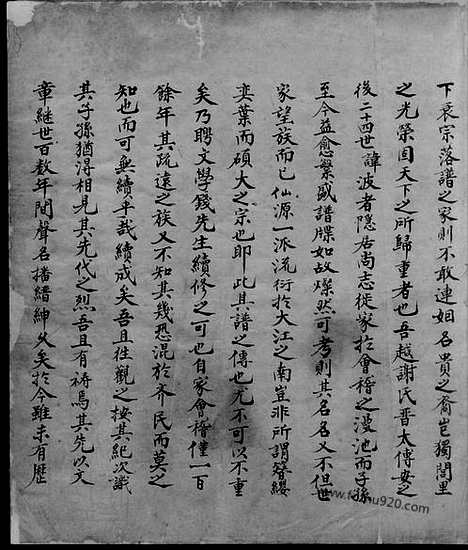 下衰宗落譜之家則不敢連姻名貴之裔豈獨閭里
之光榮固天下之所歸重者也吾越謝氏晋太傅安之
後二十四世諱波者隱居尚志徙家於會稽之漫池而子孫
至今益愈繁盛譜牒如故燦然可考則其名名又不但世
家望族而已仙源一派流衍於大江之南豈非所謂簪纓
奕葉而碩大之宗也即此其譜之傳也尤不可以不重
矣乃聘文學錢先生續修之可也自家會稽僅一百
餘年其疏遠之族又不知其幾恐混於齊民而莫之
知也而可無續乎哉續成矣吾且徃觀之按其紀次識
其子孫猶得相見其先代之烈吾且有禱焉其先以文
章継世百数年聞聲名播縉紳久矣於今雖未有歷
www.famu920.com